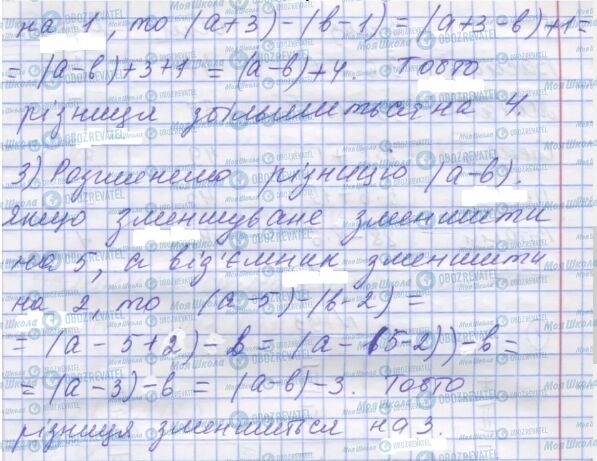 на 1, то (а+3)-(в-1) = (а+3-в)+1=
= (а-в)+3+1 = (а-в)+4. Тобто
різниця збільшиться на 4.
3) Розглянемо різницю (а-в).
Якщо зменшуване зменшити
на 5, а від'ємник зменшити
на 2, то (а-5)-(в-2) =
= (а-5+2)-в = (а-(5-2))-в =
= (а-3)-в = (а-в)-3. Тобто
різниця зменшиться на 3.